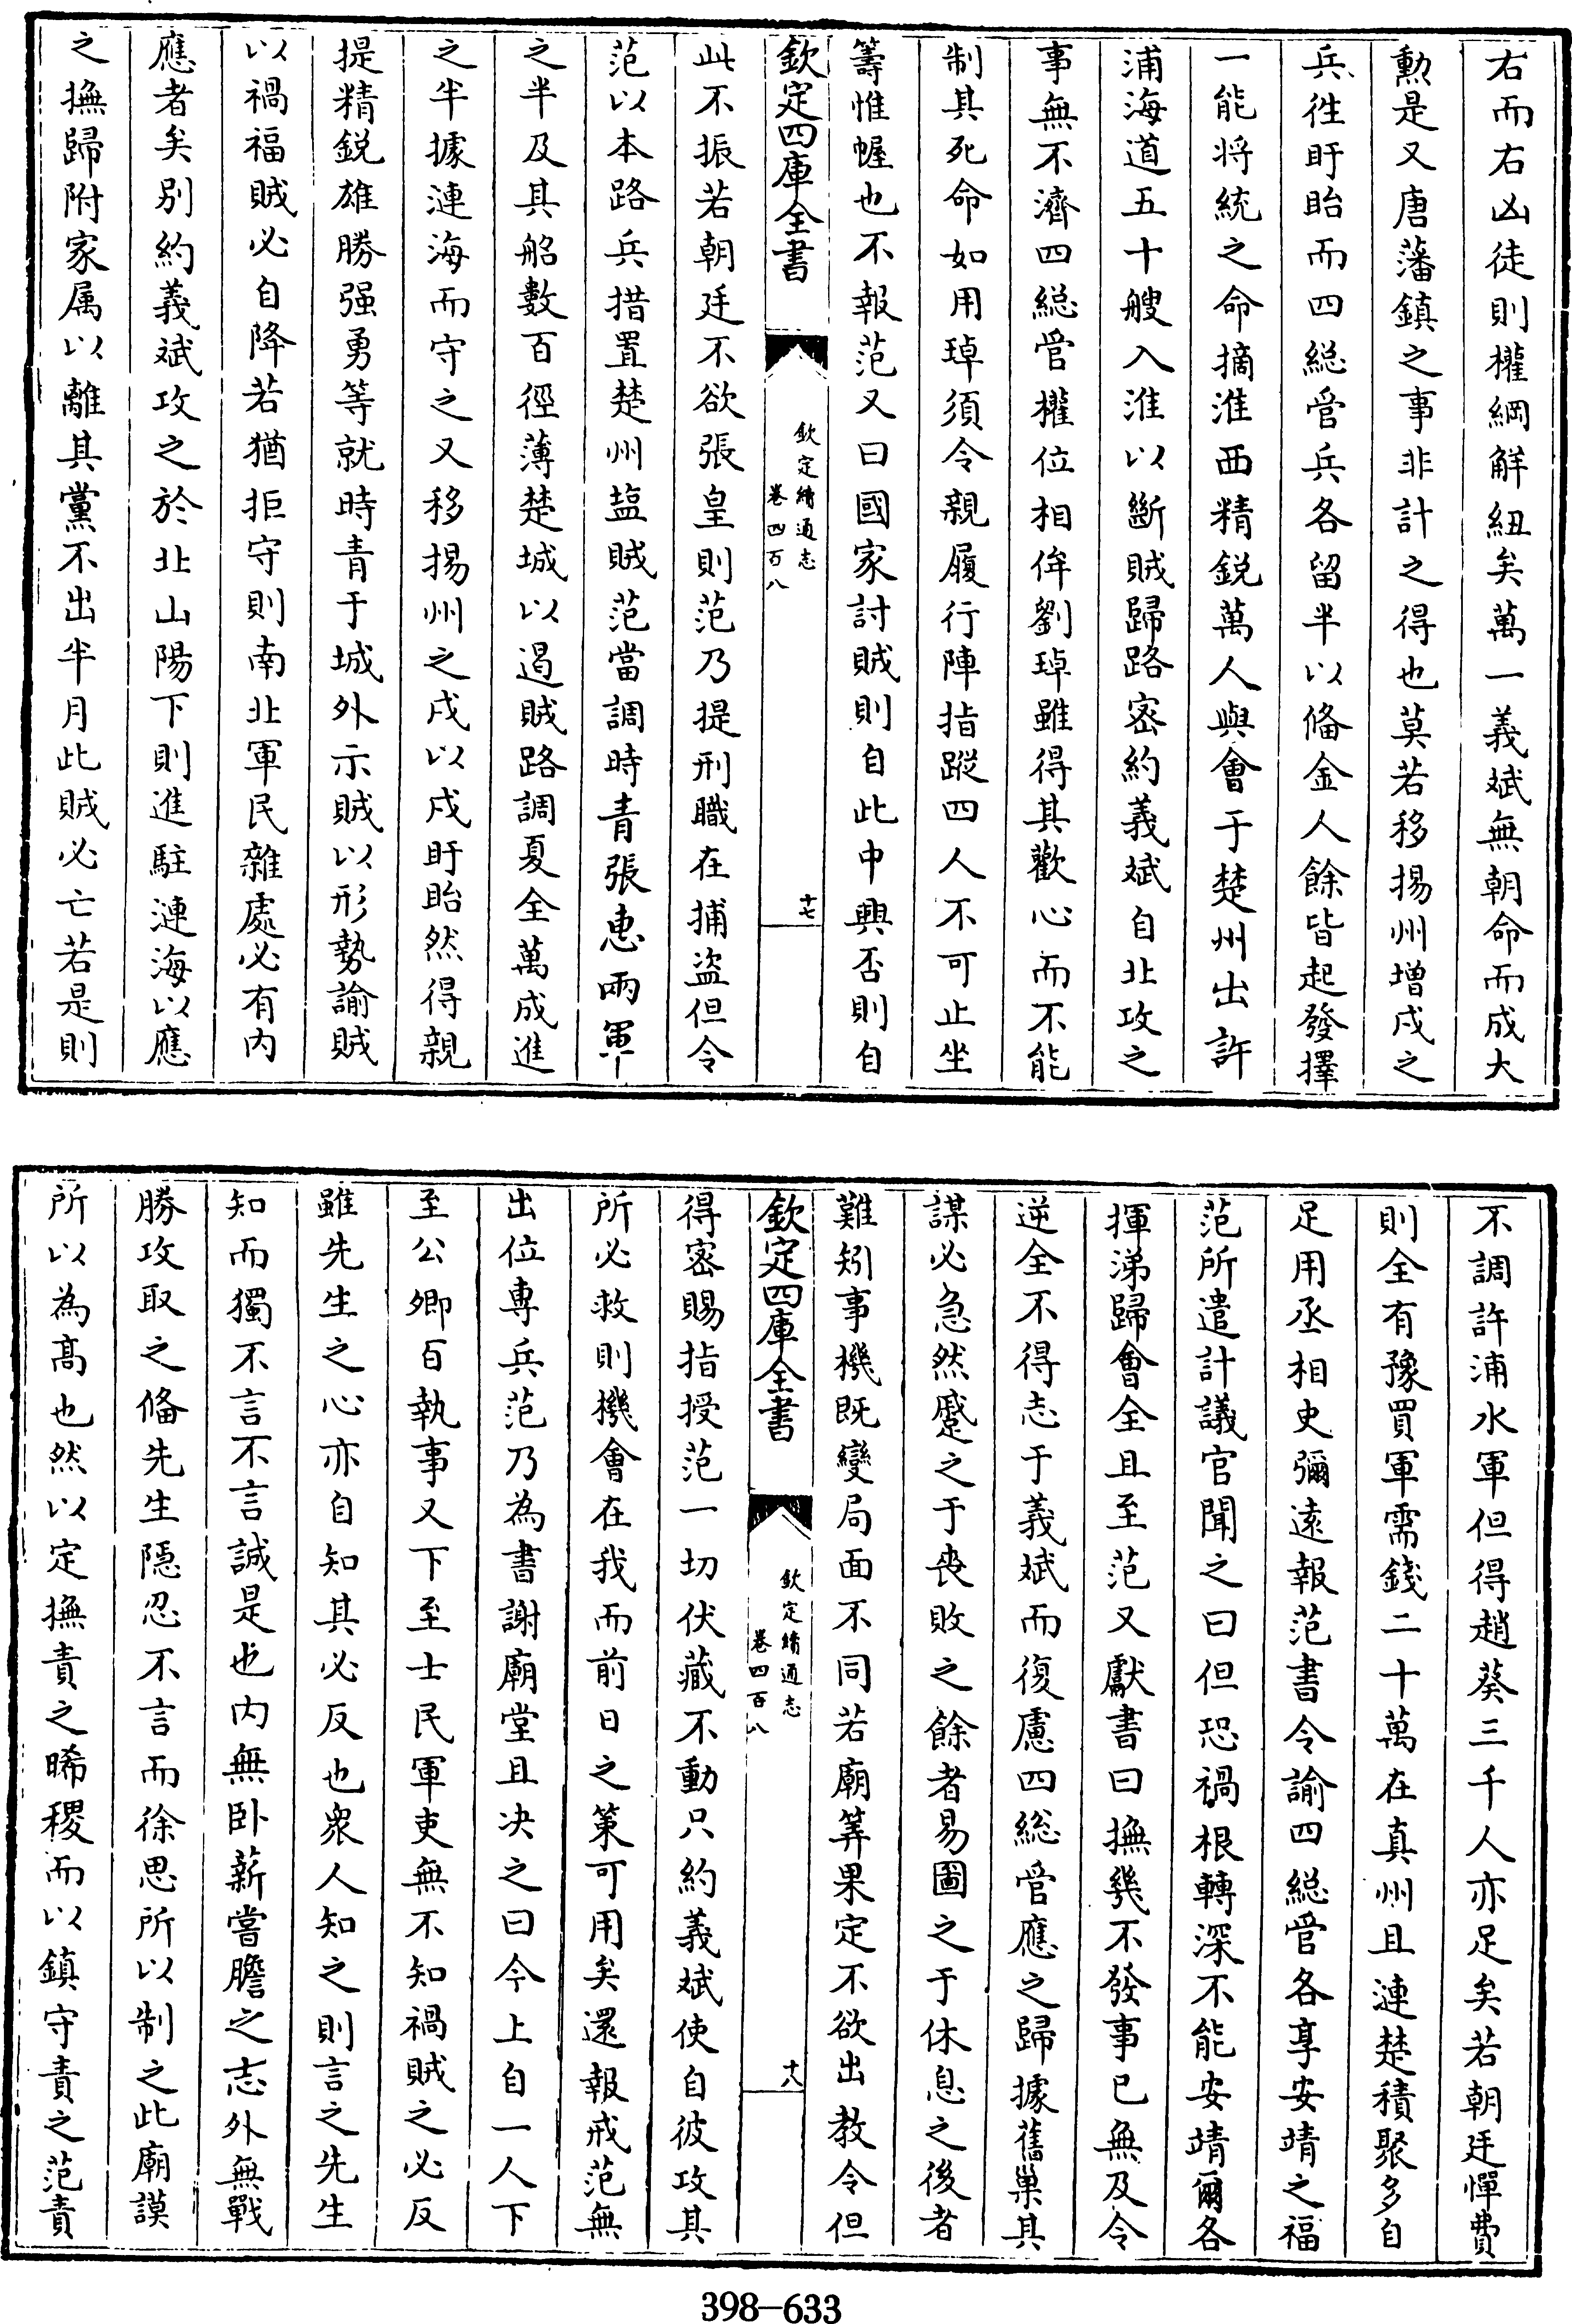 右而右凶徒則權綱解紐矣萬一義斌無朝命而成大
勲是又唐藩鎮之事非計之得也莫若移揚州增戍之
兵徃盱眙而四緫管兵各留半以備金人餘皆起發擇
一能将統之命摘淮西精鋭萬人與會于楚州出許
浦海道五十艘入淮以斷賊歸路密約義斌自北攻之
事無不濟四緫管權位相侔劉琸雖得其歡心而不能
制其死命如用琸須令親履行陣指蹤四人不可止坐
籌惟幄也不報范又曰國家討賊則自此中興否則自
欽定四庫全書
欽定續通志
卷四百八
十七
此不振若朝廷不欲張皇則范乃提刑職在捕盗但令
范以本路兵措置楚州盐賊范當調時青張惠兩軍
之半及其船數百徑薄楚城以遏賊路調夏全萬成進
之半據漣海而守之又移揚州之戍以戍盱眙然得親
提精鋭雄勝强勇等就時青于城外示賊以形勢諭賊
以禍福賊必自降若猶拒守則南北軍民雜處必有内
應者矣别約義斌攻之於北山陽下則進駐漣海以應
之撫歸附家属以離其黨不出半月此賊必亡若是則
不調許浦水軍但得趙葵三千人亦足矣若朝廷憚費
則全有豫買軍需錢二十萬在真州且漣楚積聚多自
足用丞相史彌遠報范書令諭四緫管各享安靖之福
范所遣計議官聞之曰但恐禍根轉深不能安靖爾各
揮涕歸會全且至范又獻書曰撫幾不發事已無及令
逆全不得志于義斌而復慮四総管應之歸據舊巢其
謀必急然蹙之于丧敗之餘者易圖之于休息之後者
難矧事機既變局面不同若廟筭果定不欲出教令但
欽定四庫全書
欽定續通志
卷四百八
十八
得密賜指授范一切伏藏不動只約義斌使自彼攻其
所必救則機會在我而前日之策可用矣還報戒范無
出位專兵范乃為書謝廟堂且决之曰今上自一人下
至公卿百執事又下至士民軍吏無不知禍賊之必反
雖先生之心亦自知其必反也衆人知之則言之先生
知而獨不言不言誠是也内無卧薪嘗膽之志外無戰
勝攻取之備先生隠忍不言而徐思所以制之此廟謨
所以為髙也然以定撫責之晞稷而以鎮守責之范責
398-633